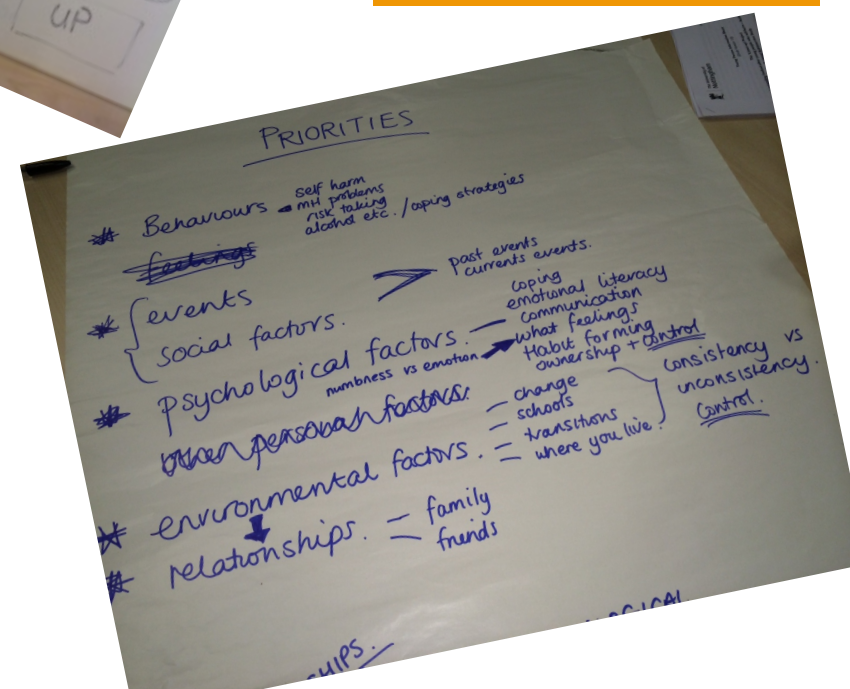 UP
PRIORITIES
* Behaviours - self harm
MH problems
risk taking
alcohol etc. / coping strategies
feelings
* { events
social factors. > past events
currents events.
* psychological factors. — coping
emotional literacy
communication
numbness vs emotion → what feelings
Habit forming
ownership + control
other personal factors.
* environmental factors. = change
schools
transitions
where you live.
} consistency vs
unconsistency.
control.
* relationships. = family
friends